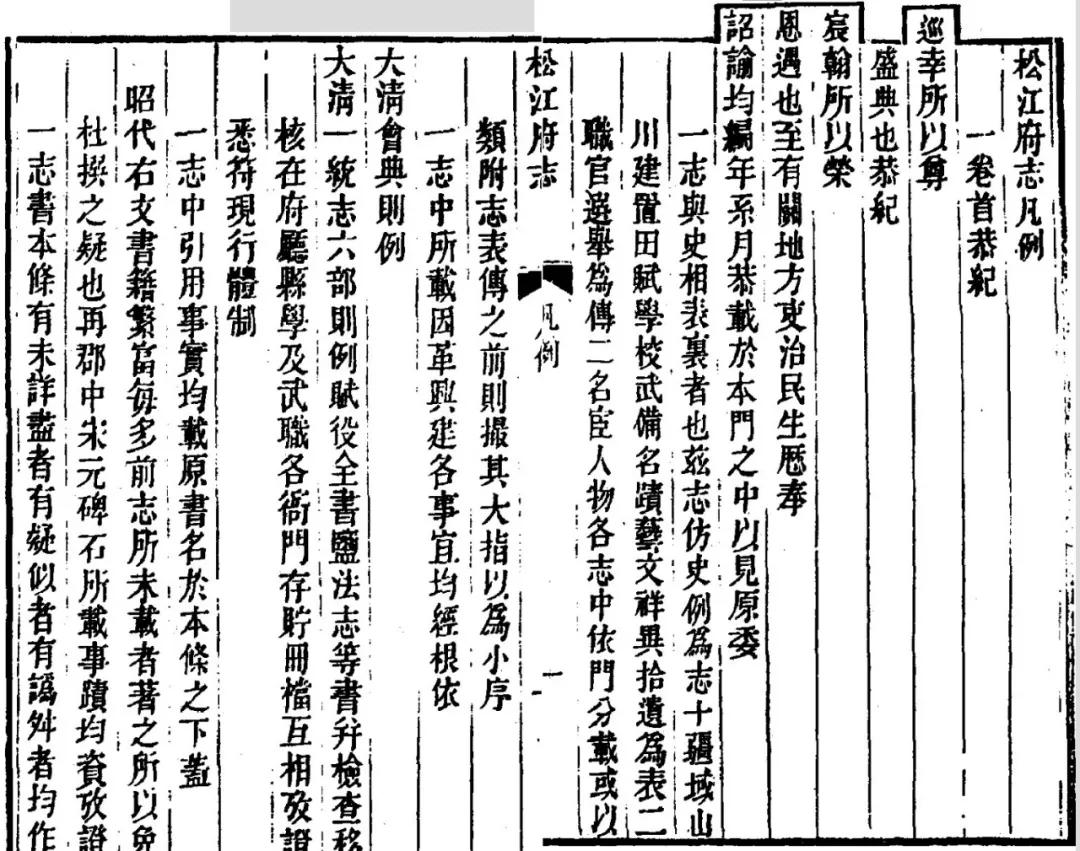 松江府志凡例
一卷首恭紀
巡幸所以尊
盛典也恭紀
宸翰所以榮
恩遇也至有關地方吏治民生歷奉
詔諭均編年系月恭載於本門之中以見原委
一志與史相表裏者也玆志仿史例爲志十疆域山
川建置田賦學校武備名蹟藝文祥異拾遺爲表二
職官選舉爲傳二名臣人物各志中依門分載或以
松江府志
凡例
一
類附志表傳之前則撮其大指以爲小序
一志中所載因革興建各事宜均經根依
大淸會典則例
大淸一統志六部則例賦役全書鹽法志等書幷檢查移
核在府廳縣學及武職各衙門存貯冊檔互相攷證
悉符現行體制
一志中引用事實均載原書名於本條之下蓋
昭代右文書籍繁富每多前志所未載者著之所以免
杜撰之疑也再郡中宋元碑石所載事蹟均資攷證
一志書本條有未詳盡者有疑似者有譌舛者均作